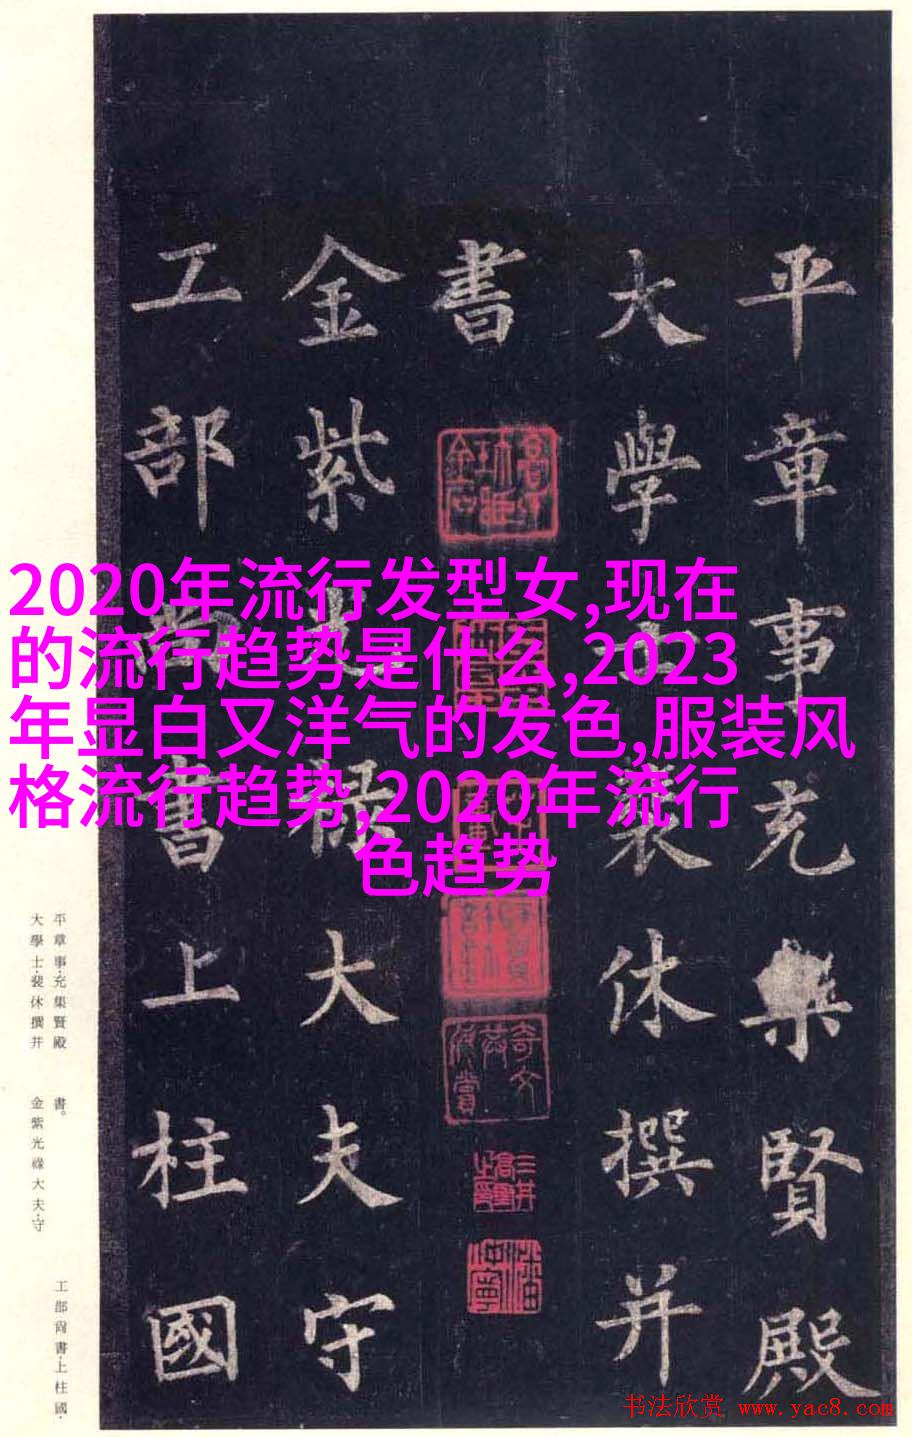 平章事充集賢殿
大學士裴休撰并
書
金紫光祿大夫守
工部尚書上柱國
2020年流行发型女,现在
的流行趋势是什么,2023
年显白又洋气的发色,服装风
格流行趋势,2020年流行
色趋势
平章事·充集賢殿
大學士·裴休撰并
書。
金紫光祿大夫·守
工部尚書·上柱國·
书法欣赏 www.yac8.com